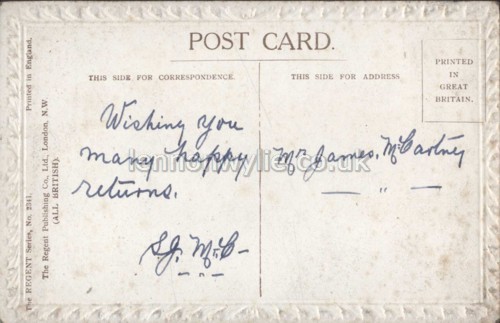 POST CARD.
THIS SIDE FOR CORRESPONDENCE.
THIS SIDE FOR ADDRESS
PRINTED
IN
GREAT
BRITAIN.
Wishing you
many happy
returns.
S.J. McC-
Mr. James. McCartney
— " —
The REGENT Series, No. 2341. Printed in England.
The Regent Publishing Co., Ltd., London, N.W
(ALL BRITISH).
kennonwylie.co.uk